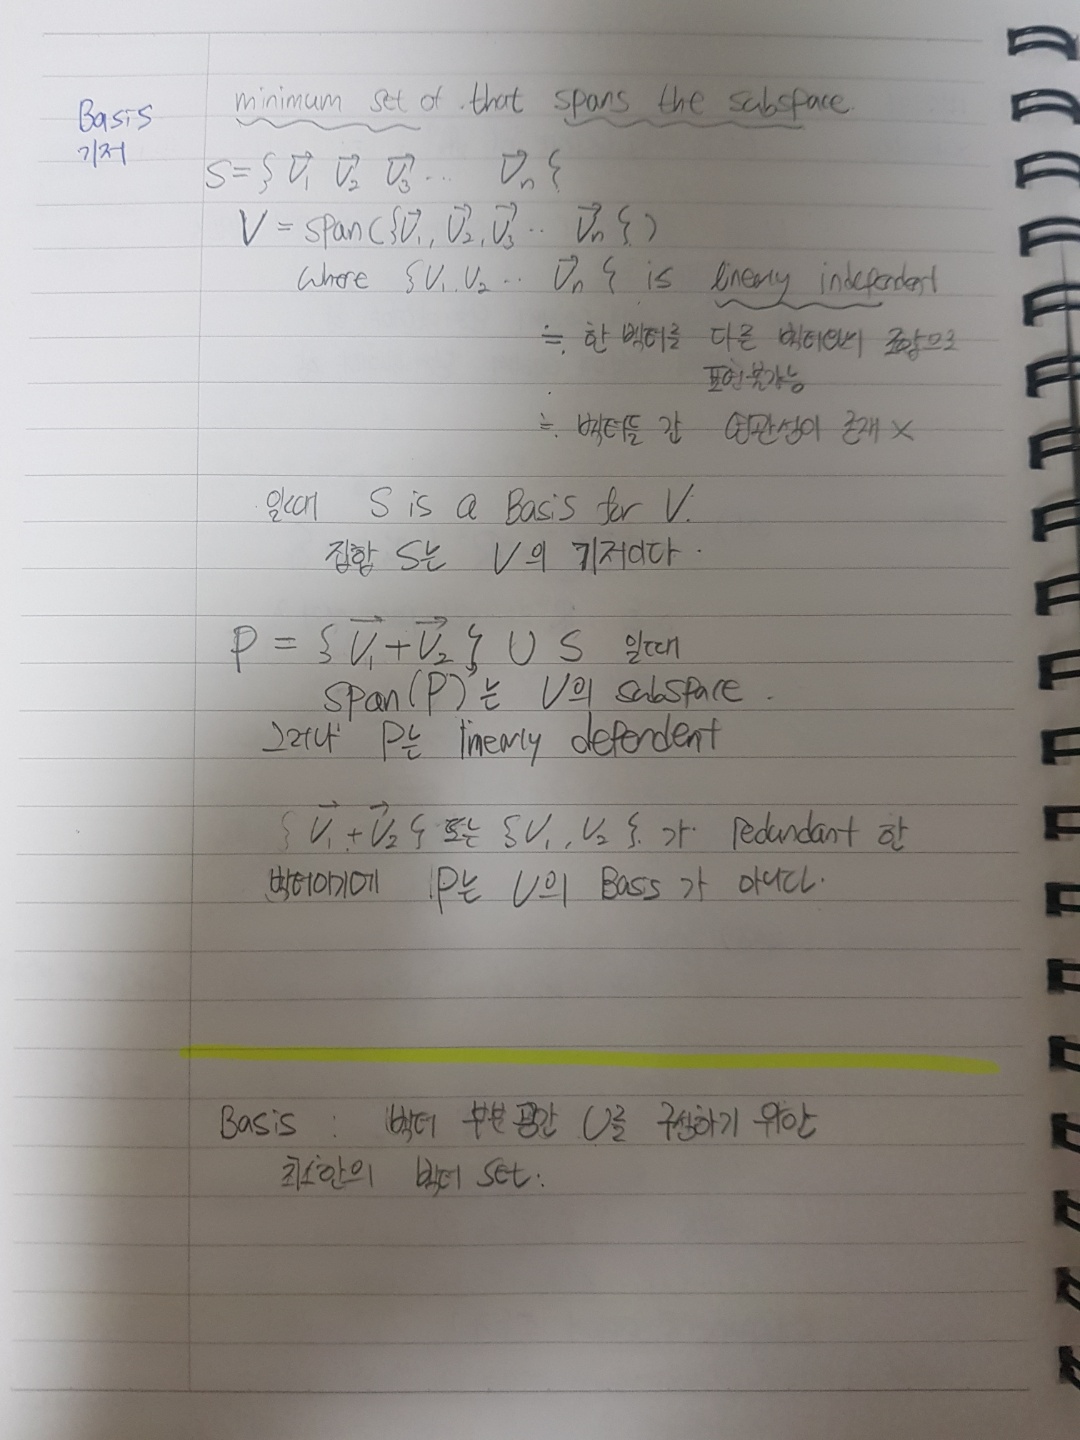 Basis
기저
minimum set of that spans the subspace.
S={ V₁ V₂ V₃ ... Vₙ }
V = span({V₁, V₂, V₃ .. Vₙ })
where {V₁, V₂ .. Vₙ } is linearly independent
≒. 한 벡터를 다른 벡터와의 조합으로
표현불가능
≒. 벡터들 간 연관성이 존재 X
일때 S is a Basis for V.
집합 S는 V의 기저이다.
P = { V₁ + V₂ } ∪ S 일때
span(P)는 V의 subspace.
그러나 P는 linearly dependent
{ V₁ + V₂ } 또는 {V₁, V₂ }.가 redundant 한
벡터이기에 P는 V의 Basis가 아니다.
Basis : 벡터 부분 공간 V를 구성하기 위한
최소한의 벡터 set.